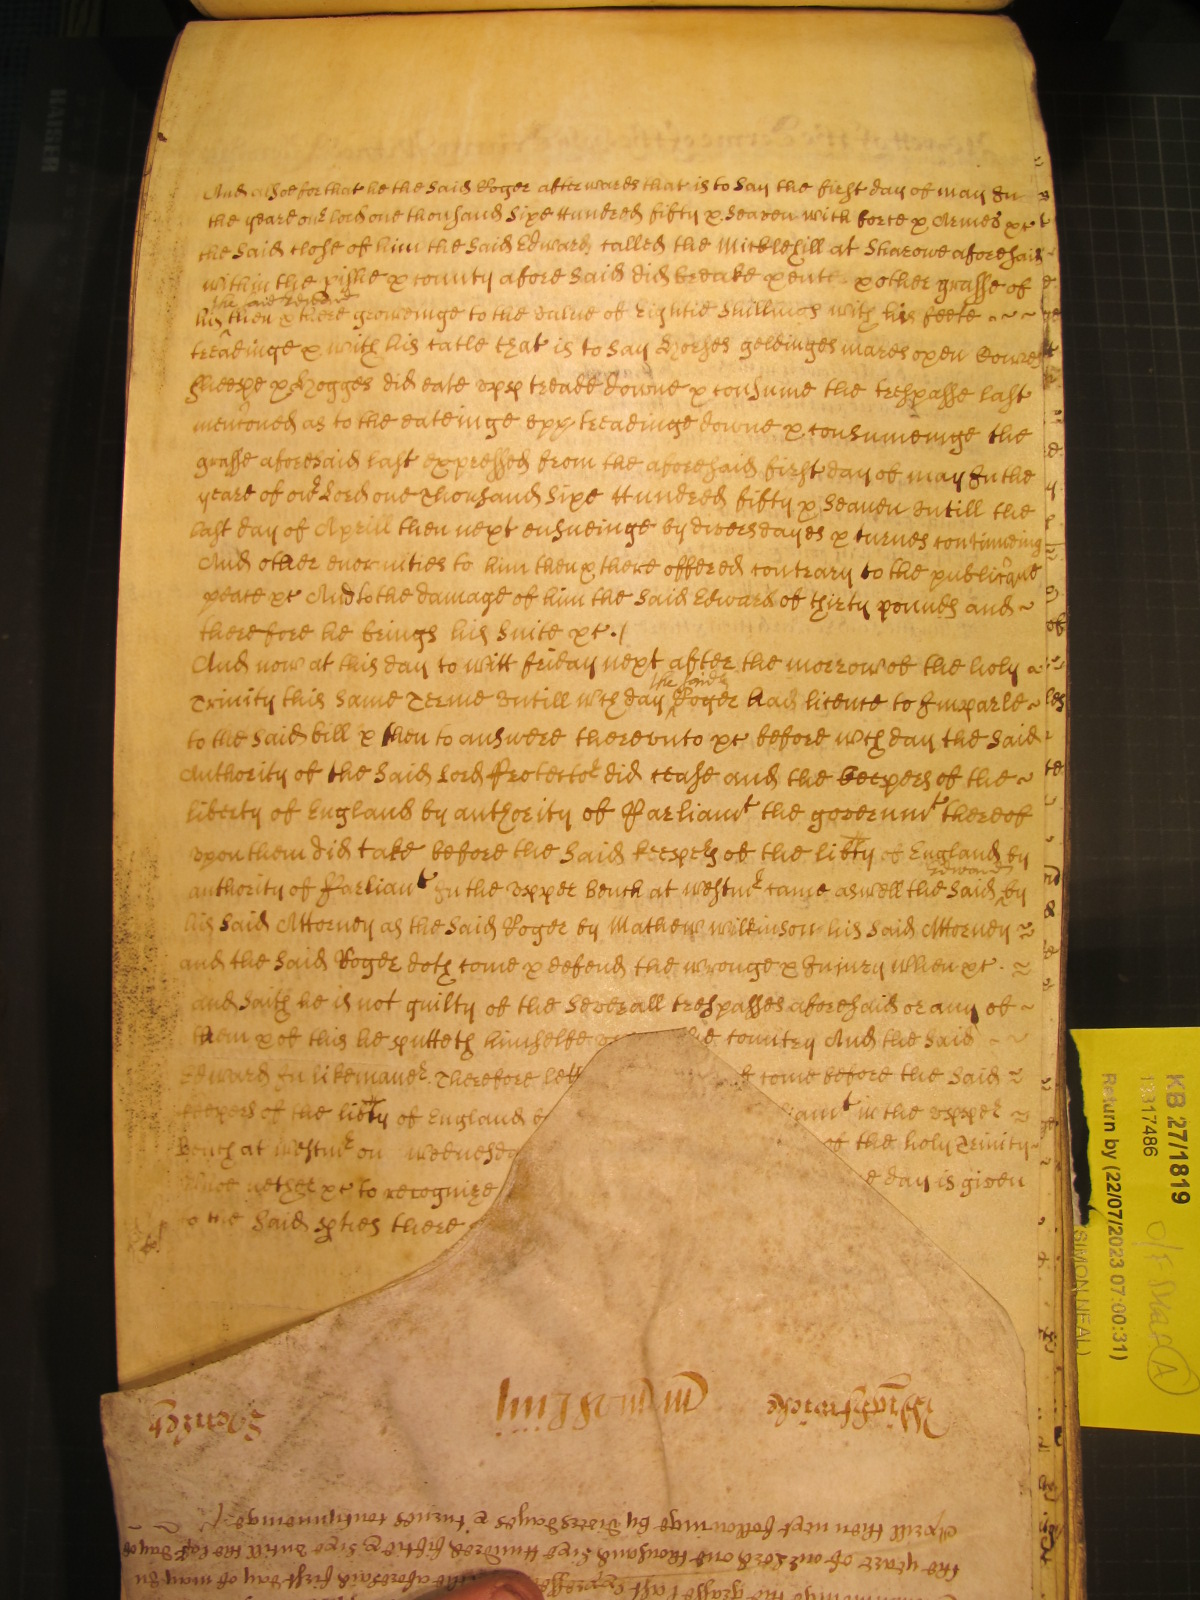 And alsoe for that he the said Roger afterwards that is to say the first day of may In
the yeare our lord one thousand sixe Hundred fifty & Seaven with force & Armes &c
the said close of him the said Edward called the Micklehill at Sharowe aforesaid
within the & county aforesaid did breake & other grasse of
the said Edward
his then & there groweinge to the value of Eightie Shillings with his feete
treadinge & with his catle that is to say Horses geldinges mares oxen Cowes
Sheepe & Hogges did eate upp treade downe & consume the trespasse last
menconed as to the eateinge upp treadinge downe & consumeinge the
grasse aforesaid last expressed from the aforesaid first day of may In the
yeare of our Lord one Thousand Sixe Hundred fifty & Seaven Untill the
last day of Aprill then next ensueinge by divers dayes & turnes continueing
And other enormities to him then & there offered contrary to the publique
peace &c And to the damage of him the said Edward of thirty pounds and
therefore he brings his suite &c.
And now at this day to witt friday next after the morrow of the holy
the said
Trinity this same Terme Untill wch day Roger had licence to Imparle
to the said bill & then to answere thereunto &c before wch day the said
Authority of the said Lord Protector did cease and the keepers of the
liberty of England by authority of Parliamt the governmt thereof
upon them did take before the said keepers of the libty of England by
Edward
authority of Parliamt In the upper Bench at Westmr came aswell the said by
his said Attorney as the said Roger by Mathew Wilkinson his said Attorney
and the said Roger doth come & defend the wronge & Injury when &c.
and saith he is not guilty of the severall trespasses aforesaid or any of
them & of this he putteth himselfe country And the said
Edward In like maner Therefore lett come before the said
keepers of the libty of England iamt in the upper
Bench at Westmr on Wednesda of the holy Trinity
nether &c to recognize e day is given
to the said pties there
KB 27/1819
13317486
Return by (22/07/2023 07:00:31)
SIMON NEAL)
A
Aprill then next followinge by divers dayes & turnes continueinge
the yeare of our Lord one thousand sixe Hundred fiftie & sixe untill the last day of
the grasse last expressed the aforesaid first day of may In